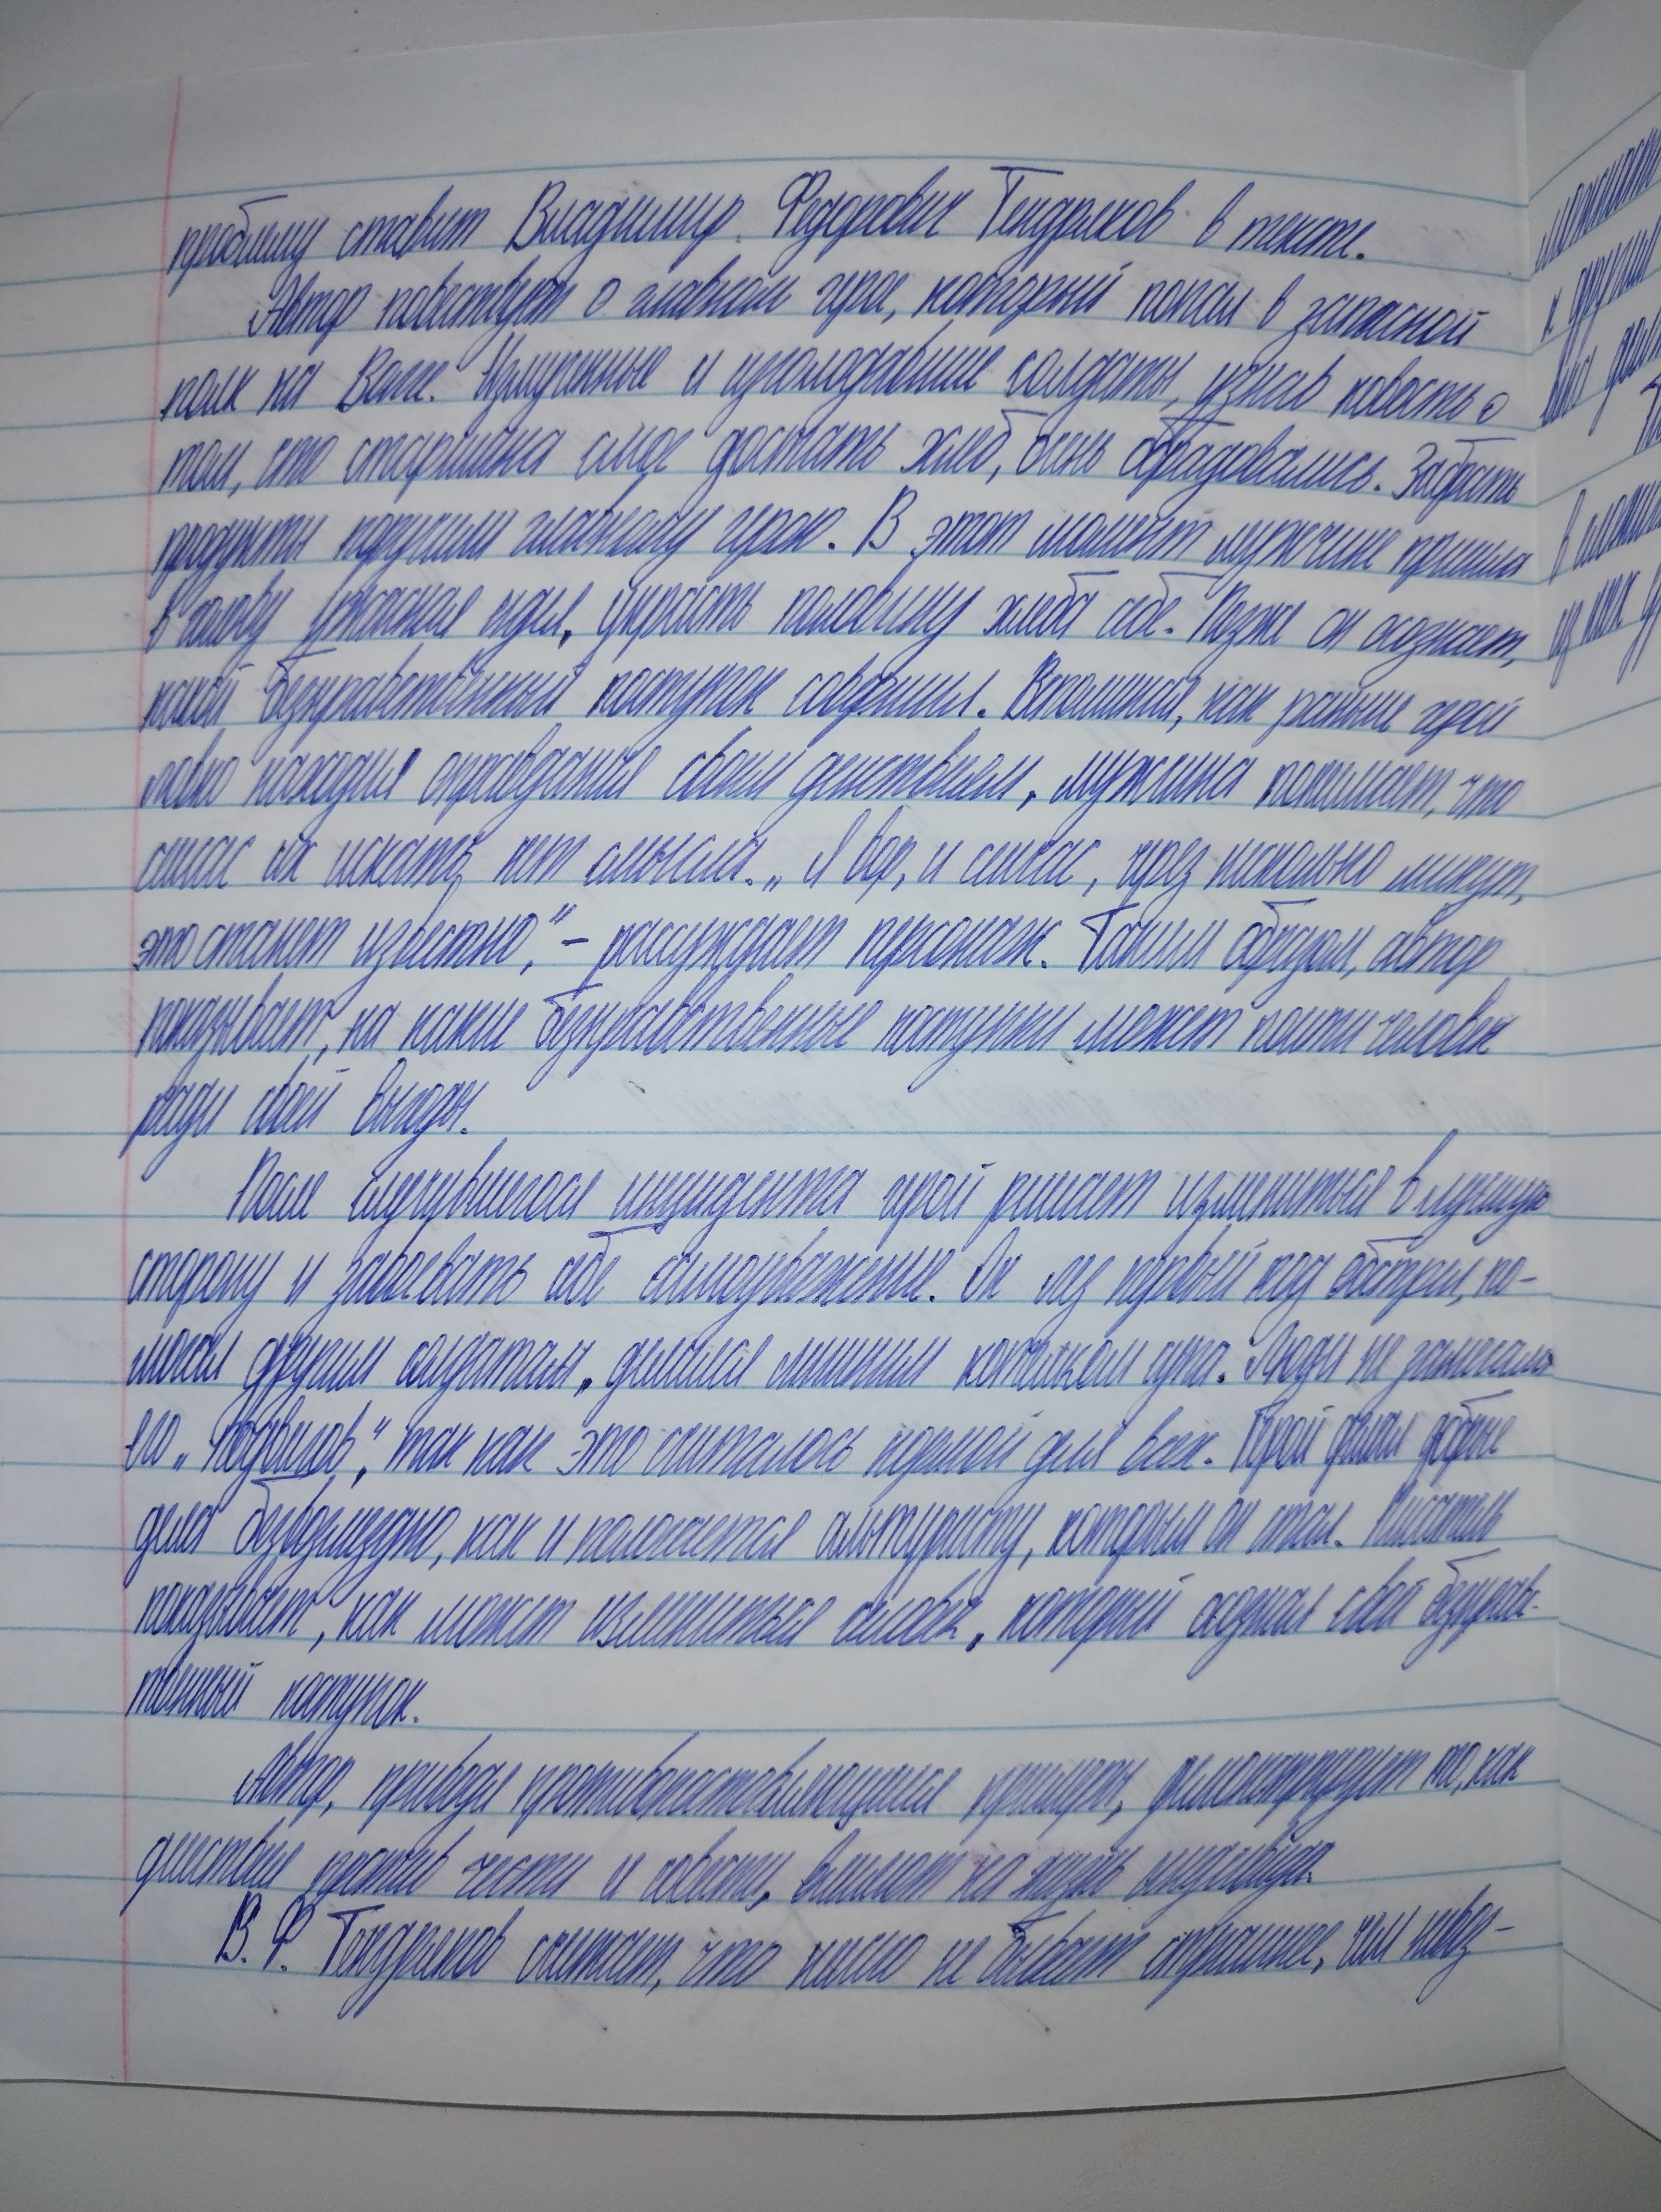 проблему ставит Владимир Федорович Тендряков в тексте.
Автор повествует о главном герое, который попал в запасной
полк на Волге. Измученные и изголодавшие солдаты, узнав новость о
том, что старшина смог достать хлеб, очень обрадовались. Забрать
продукты поручили главному герою. В этот момент мужчине пришла
в голову ужасная идея, украсть половину хлеба себе. Позже он осознает,
какой безнравственный поступок совершил. Вспоминая, как раньше герой
ловко находил оправдания своим действиям, мужчина понимает, что
сейчас их искать нет смысла. „Я вор, и сейчас, через несколько минут,
это станет известно," – рассуждает персонаж. Таким образом, автор
показывает, на какие безнравственные поступки может пойти человек
ради своей выгоды.
После случившегося инцидента герой решает измениться в лучшую
сторону и завоевать себе самоуважение. Он лез первый под обстрел, по-
могал другим солдатам, делился лишним котелком супа. Люди не замечали
его „подвигов", так как это считалось нормой для всех. Герой делал добрые
дела безвозмездно, как и полагается альтруисту, которым он стал. Писатель
показывает, как может измениться человек, который осознал свой безнравс-
твенный поступок.
Автор, приводя противопоставляющиеся примеры, демонстрирует то, как
действие против чести и совести, влияют на жизнь индивида.
В. Ф. Тендряков считает, что ничего не бывает страшнее, чем невоз-
к другим